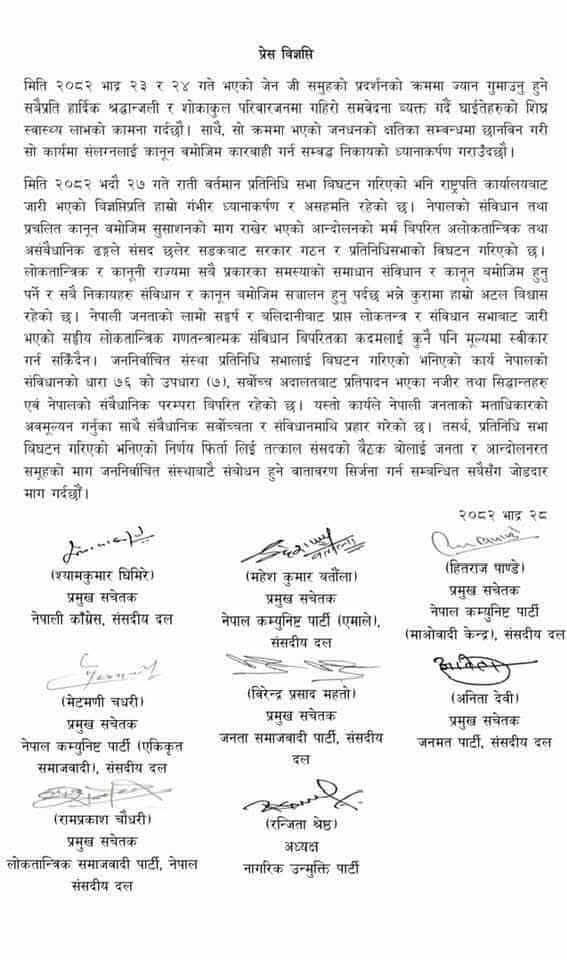 प्रेस विज्ञप्ति
मिति २०८२ भाद्र २३ र २४ गते भएको जेन जी समुहको प्रदर्शनको क्रममा ज्यान गुमाउनु हुने
सबैप्रति हार्दिक श्रद्धान्जली र शोकाकुल परिवारजनमा गहिरो समवेदना व्यक्त गर्दै घाईतेहरुको शिघ्र
स्वास्थ्य लाभको कामना गर्दछौं। साथै, सो क्रममा भएको जनधनको क्षतिका सम्बन्धमा छानविन गरी
सो कार्यमा संलग्नलाई कानून बमोजिम कारबाही गर्न सम्बद्ध निकायको ध्यानाकर्षण गराउँदछौं।
मिति २०८२ भदौ २७ गते राती वर्तमान प्रतिनिधि सभा विघटन गरिएको भनि राष्ट्रपति कार्यालयबाट
जारी भएको विज्ञप्तिप्रति हाम्रो गंभीर ध्यानाकर्षण र असहमति रहेको छ। नेपालको संविधान तथा
प्रचलित कानून बमोजिम सुसाशनको माग राखेर भएको आन्दोलनको मर्म बिपरित अलोकतान्त्रिक तथा
असंवैधानिक ढङ्गले संसद छलेर सडकबाट सरकार गठन र प्रतिनिधिसभाको विघटन गरिएको छ।
लोकतान्त्रिक र कानूनी राज्यमा सबै प्रकारका समस्याको समाधान संविधान र कानून बमोजिम हुनु
पर्ने र सबै निकायहरु संविधान र कानून बमोजिम सञ्चालन हुनु पर्दछ भन्ने कुरामा हाम्रो अटल विश्वास
रहेको छ। नेपाली जनताको लामो सङ्घर्ष र बलिदानीबाट प्राप्त लोकतन्त्र र संविधान सभाबाट जारी
भएको सङ्घीय लोकतान्त्रिक गणतन्त्रात्मक संबिधान बिपरितका कदमलाई कुनै पनि मूल्यमा स्वीकार
गर्न सकिँदैन। जननिर्वाचित संस्था प्रतिनिधि सभालाई विघटन गरिएको भनिएको कार्य नेपालको
संविधानको धारा ७६ को उपधारा (७), सर्वोच्च अदालतबाट प्रतिपादन भएका नजीर तथा सिद्धान्तहरु
एवं नेपालको संवैधानिक परम्परा विपरित रहेको छ। यस्तो कार्यले नेपाली जनताको मताधिकारको
अवमूल्यन गर्नुका साथै संवैधानिक सर्वोच्चता र संविधानमाथि प्रहार गरेको छ। तसर्थ, प्रतिनिधि सभा
विघटन गरिएको भनिएको निर्णय फिर्ता लिई तत्काल संसदको बैठक बोलाई जनता र आन्दोलनरत
समूहको माग जननिर्वाचित संस्थाबाटै संबोधन हुने वातावरण सिर्जना गर्न सम्बन्धित सबैसँग जोडदार
माग गर्दछौं।
२०८२ भाद्र २८
(श्यामकुमार घिमिरे)
प्रमुख सचेतक
नेपाली काँग्रेस, संसदीय दल
(महेश कुमार बर्तौला)
प्रमुख सचेतक
नेपाल कम्युनिष्ट पार्टी (एमाले),
संसदीय दल
(हितराज पाण्डे)
प्रमुख सचेतक
नेपाल कम्युनिष्ट पार्टी
(माओवादी केन्द्र), संसदीय दल
(मेटमणी चधरी)
प्रमुख सचेतक
नेपाल कम्युनिष्ट पार्टी (एकिकृत
समाजवादी), संसदीय दल
(बिरेन्द्र प्रसाद महतो)
प्रमुख सचेतक
जनता समाजवादी पार्टी, संसदीय
दल
(अनिता देवी)
प्रमुख सचेतक
जनमत पार्टी, संसदीय दल
(रामप्रकाश चौधरी)
प्रमुख सचेतक
लोकतान्त्रिक समाजवादी पार्टी, नेपाल
संसदीय दल
(रन्जिता श्रेष्ठ)
अध्यक्ष
नागरिक उन्मुक्ति पार्टी